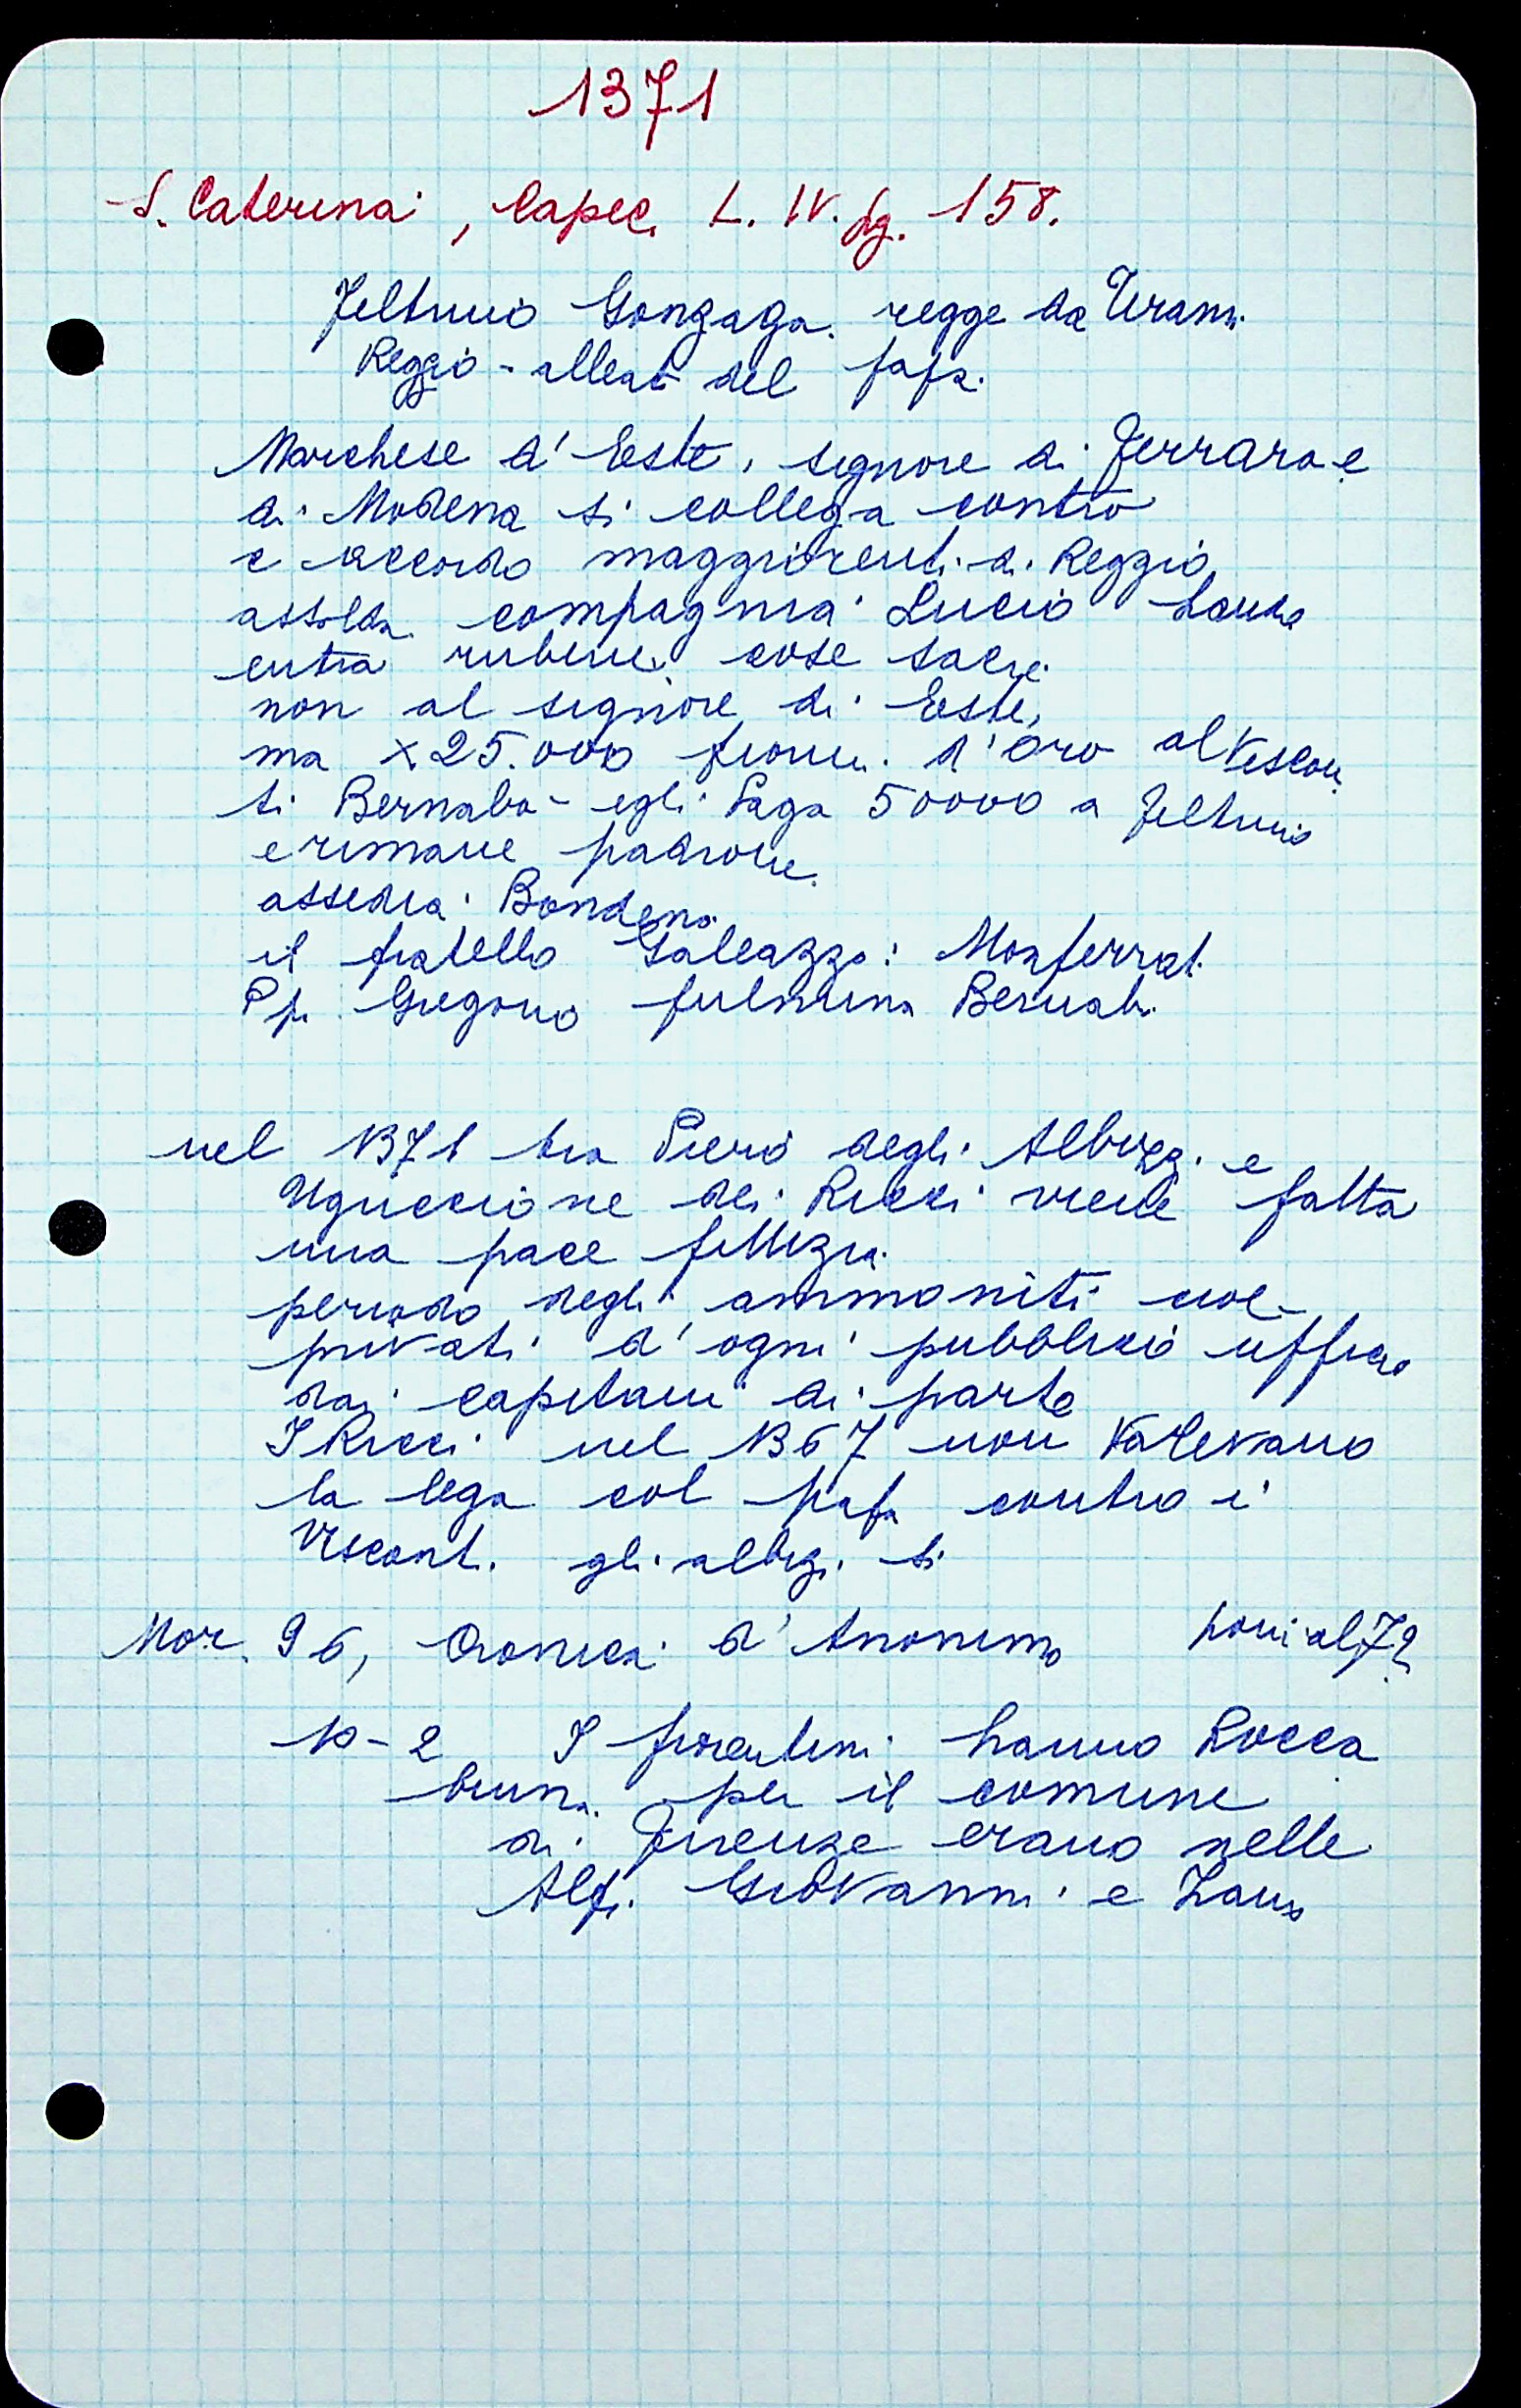 1371
S. Caterina, Capec. L. IV. fg. 158.
Feltrino Gonzaga. regge da Tirann.
Reggio - alleat del papa.
Marchese d'Este, signore di Ferrara e
di Modena si collega contro
e accordo maggiorenti di Reggio
assolda compagnia Lucio Lando
entra ruberie, cose sacre.
non al signore di Este,
ma x 25.000 fiorin. d'Oro al Viscon
ti Bernabo - egli Paga 50000 a Feltrino
e rimane padrone.
assedia Bondeno.
il fratello Galeazzo: Monferrat.
Pp. Gregorio fulmina Bernab.
nel 1371 tra Piero degli Albizzi e
Uguccione dei Ricci viene fatta
una pace fittizia.
periodo degli ammoniti cioè
privati d'ogni pubblico ufficio
dai capitani di parte
I Ricci nel 1367 non Volevano
la lega col papa contro i
Viscont. gli albizi si
Mor. 96, Cronica d'Anonimo porri al 72
10-2 I fiorentini hanno Rocca
bruna. per il comune
di Firenze erano nelle
Alpi Giovanni e Zano